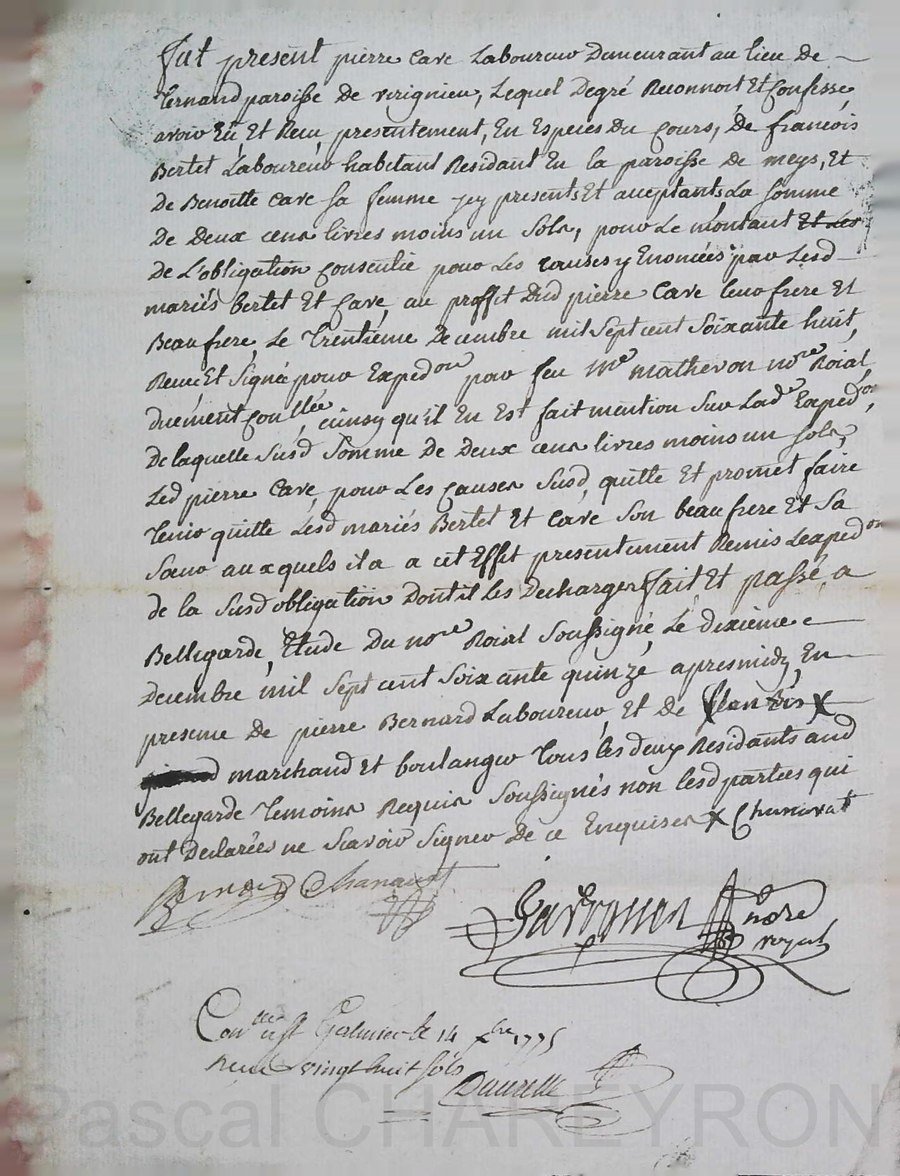 Fut present pierre Cave Laboureur Demeurant au lieu de
Ternand paroisse de verignieu, Lequel Degré Reconnoit Et Confesse
avoir Eu Et Recu presentement, En Especes Du Cours, De francois
Bertet Laboureur habitant Residant En la paroisse de meys, Et
De Benoitte Cave sa femme icy presents Et acceptants La somme
De Deux cens livres moins un Sols, pour Le montant Et Les
de L'obligation Consentie pour Les causes y Enoncées par Lesd
mariés Bertet Et Cave, au proffit Dud pierre Cave leur frere Et
Beaufrere, Le Trentieme Decembre mil Sept cent Soixante huit,
Reçue Et Signé pour Exped.on par feu Me matheron no.re Roial
duement Conllée, ainsy qu'il En Est fait mention Sur Lad.e Exped.on,
De laquelle Susd Somme De Deux cens livres moins un Sols,
Led pierre Cave, pour Les Causes Susd, quitte Et promet faire
Tenir quitte Lesd mariés Bertet Et Cave Son beaufrere Et Sa
Sœur auxquels il a a cet Effet presentement Remis Lexped.on
de la Susd obligation Dont il Les Decharge fait Et passé a
Bellegarde, Etude Du no.re Roial Soussigné, Le dixieme
Decembre mil Sept cent Soixante quinze apresmidy, En
presence De pierre Bernard Laboureur, Et De
marchand Et boulanger Tous les deux Residants aud
Bellegarde Temoins Requis Soussignés non lesd parties qui
ont Declarées ne Scavoir Signer De ce Enquises X Chanavat
Bernard Chanavat
no.re
royal
Con.lle a St Galmier le 14 Xbre 1775
Recu vingt huit sols
Daurelle
Pascal CHAREYRON